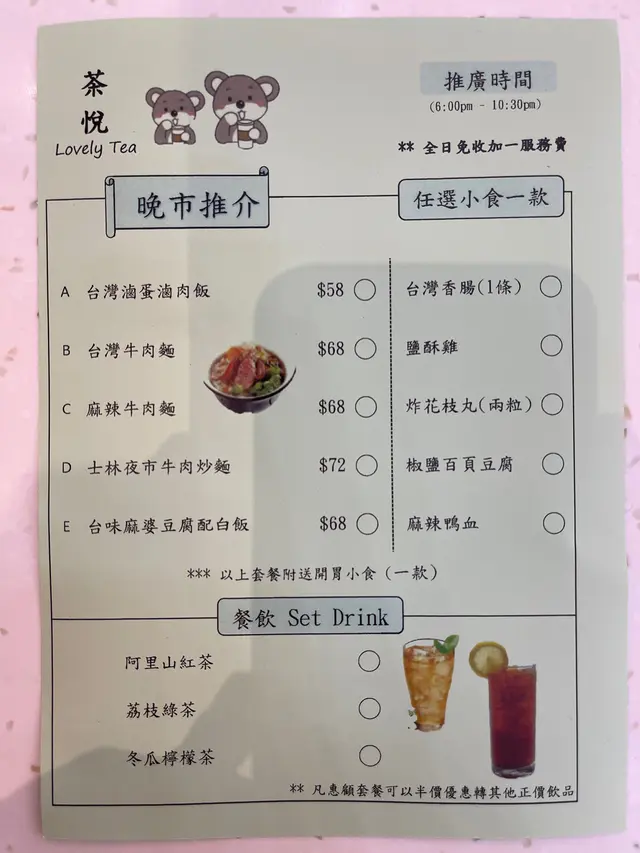 茶悅
Lovely Tea
推廣時間
(6:00pm - 10:30pm)
** 全日免收加一服務費
晚市推介
任選小食一款
A 台灣滷蛋滷肉飯 $58
台灣香腸(1條)
B 台灣牛肉麵 $68
鹽酥雞
C 麻辣牛肉麵 $68
炸花枝丸(兩粒)
D 士林夜市牛肉炒麵 $72
椒鹽百頁豆腐
E 台味麻婆豆腐配白飯 $68
麻辣鴨血
*** 以上套餐附送開胃小食 (一款)
餐飲 Set Drink
阿里山紅茶
荔枝綠茶
冬瓜檸檬茶
** 凡惠顧套餐可以半價優惠轉其他正價飲品